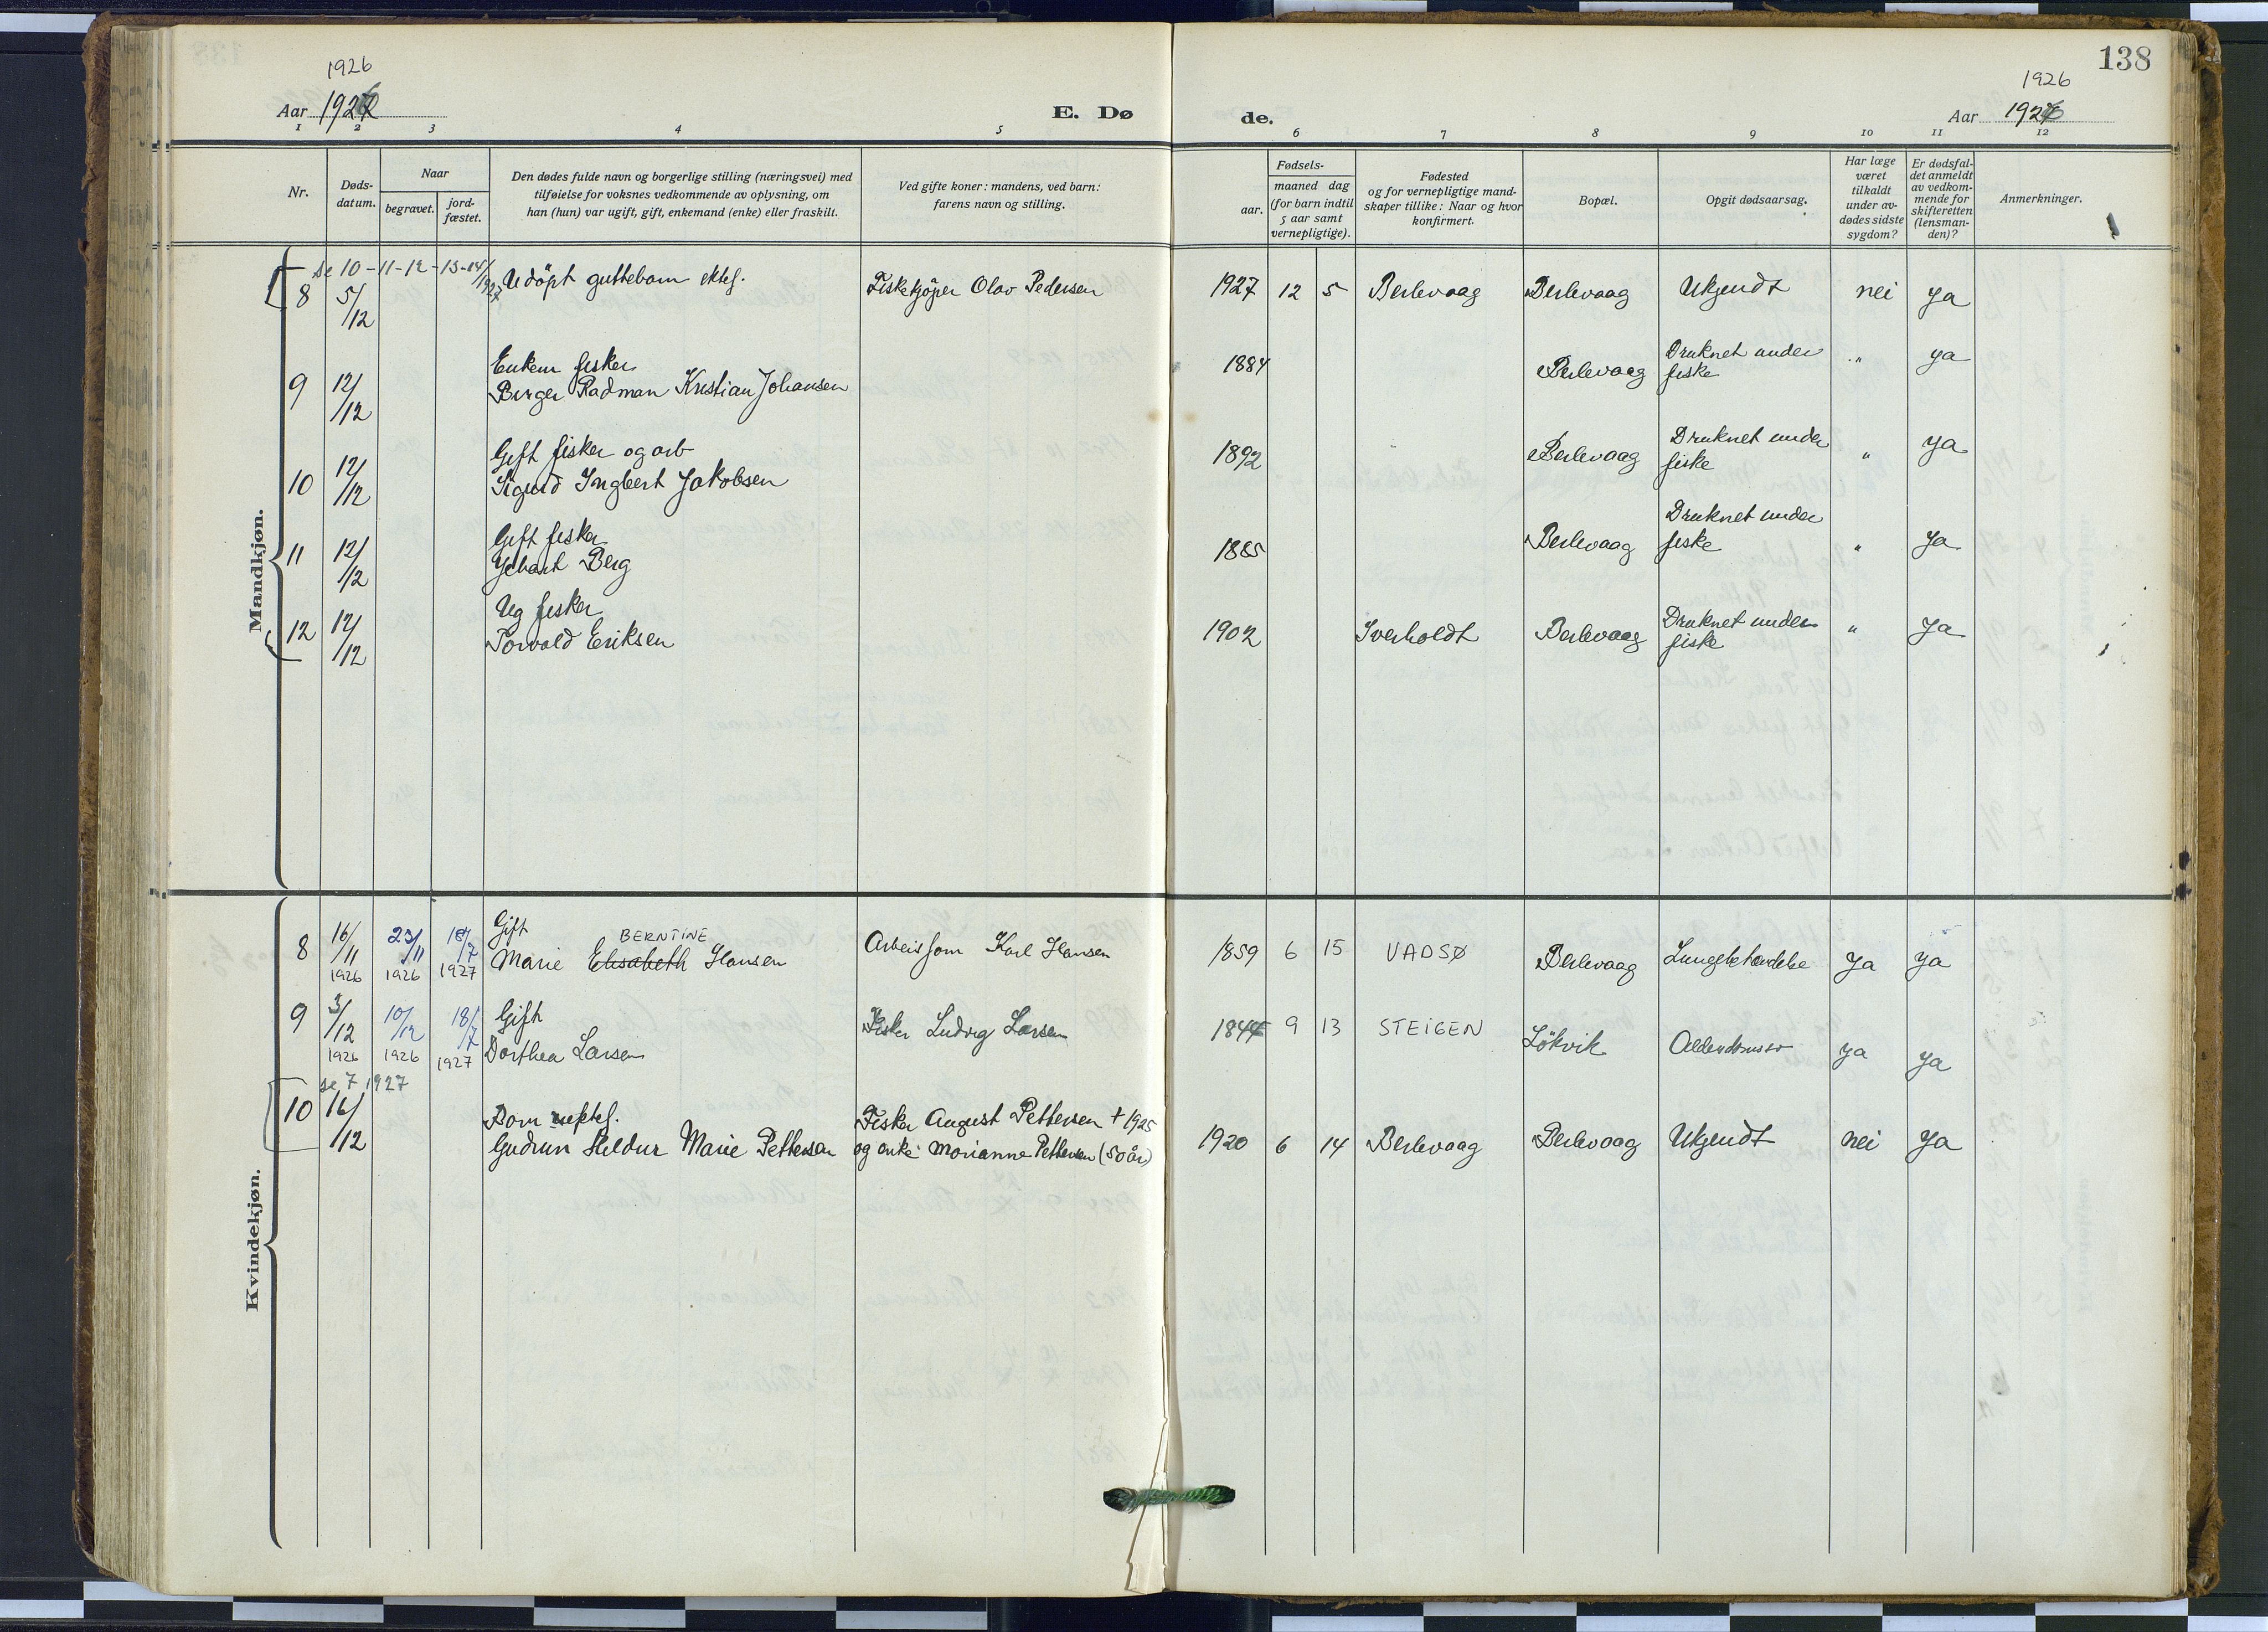 138
1926
Aar 1926
E. Dø
de.
1926
Aar 1926
1 2 3 4 5 6 7 8 9 10 11 12
Nr.
Døds-
datum.
Naar
begravet.
jord-
fæstet.
Den dødes fulde navn og borgerlige stilling (næringsvei) med
tilføielse for voksnes vedkommende av oplysning, om
han (hun) var ugift, gift, enkemand (enke) eller fraskilt.
Ved gifte koner: mandens, ved barn:
farens navn og stilling.
Fødsels-
aar.
maaned dag
(for barn indtil
5 aar samt
vernepligtige).
Fødested
og for vernepligtige mand-
skaper tillike: Naar og hvor
konfirmert.
Bopæl.
Opgit dødsaarsag.
Har læge
været
tilkaldt
under av-
dødes sidste
sygdom?
Er dødsfal-
det anmeldt
av vedkom-
mende for
skifteretten
(lensman-
den)?
Anmerkninger.
Mandkjøn.
se 10-11-12-13-14/1927
8 5/12 Udöpt guttebarn ektef. Fiskekjöper Olav Pedersen 1927 12 5 Berlevaag Berlevaag Ukjendt nei ja
Enkem fisker
9 12/12 Birger Radman Kristian Johansen 1884 Berlevaag Druknet under
fiske " ja
Gift fisker og arb
10 12/12 Sigurd Ingbert Jakobsen 1892 Berlevaag Druknet under
fiske " ja
Gift fisker
11 12/12 Berg 1885 Berlevaag Druknet under
fiske " ja
Ug fisker
12 12/12 Torvald Eriksen 1902 Sverholdt Berlevaag Druknet under
fiske " ja
Kvindekjøn.
Gift BERNTINE
8 16/11 1926 23/11 1926 18/7 1927 Marie Elisabeth Hansen Arbeisfom Karl Hansen 1859 6 15 VADSØ Berlevaag Lungebetændelse ja ja
Gift
9 3/12 1926 10/12 1926 18/7 1927 Dorthea Larsen Fisker Ludvig Larsen 1844 9 13 STEIGEN Lökvik ja ja
se 7 1927
10 16/12 Barn uektef. Fisker August Pettersen † 1925
Gudrun Heldur Marie Pettersen og enke Marianne Pettersen (50 år) 1920 6 14 Berlevaag Berlevaag Ukjendt nei ja